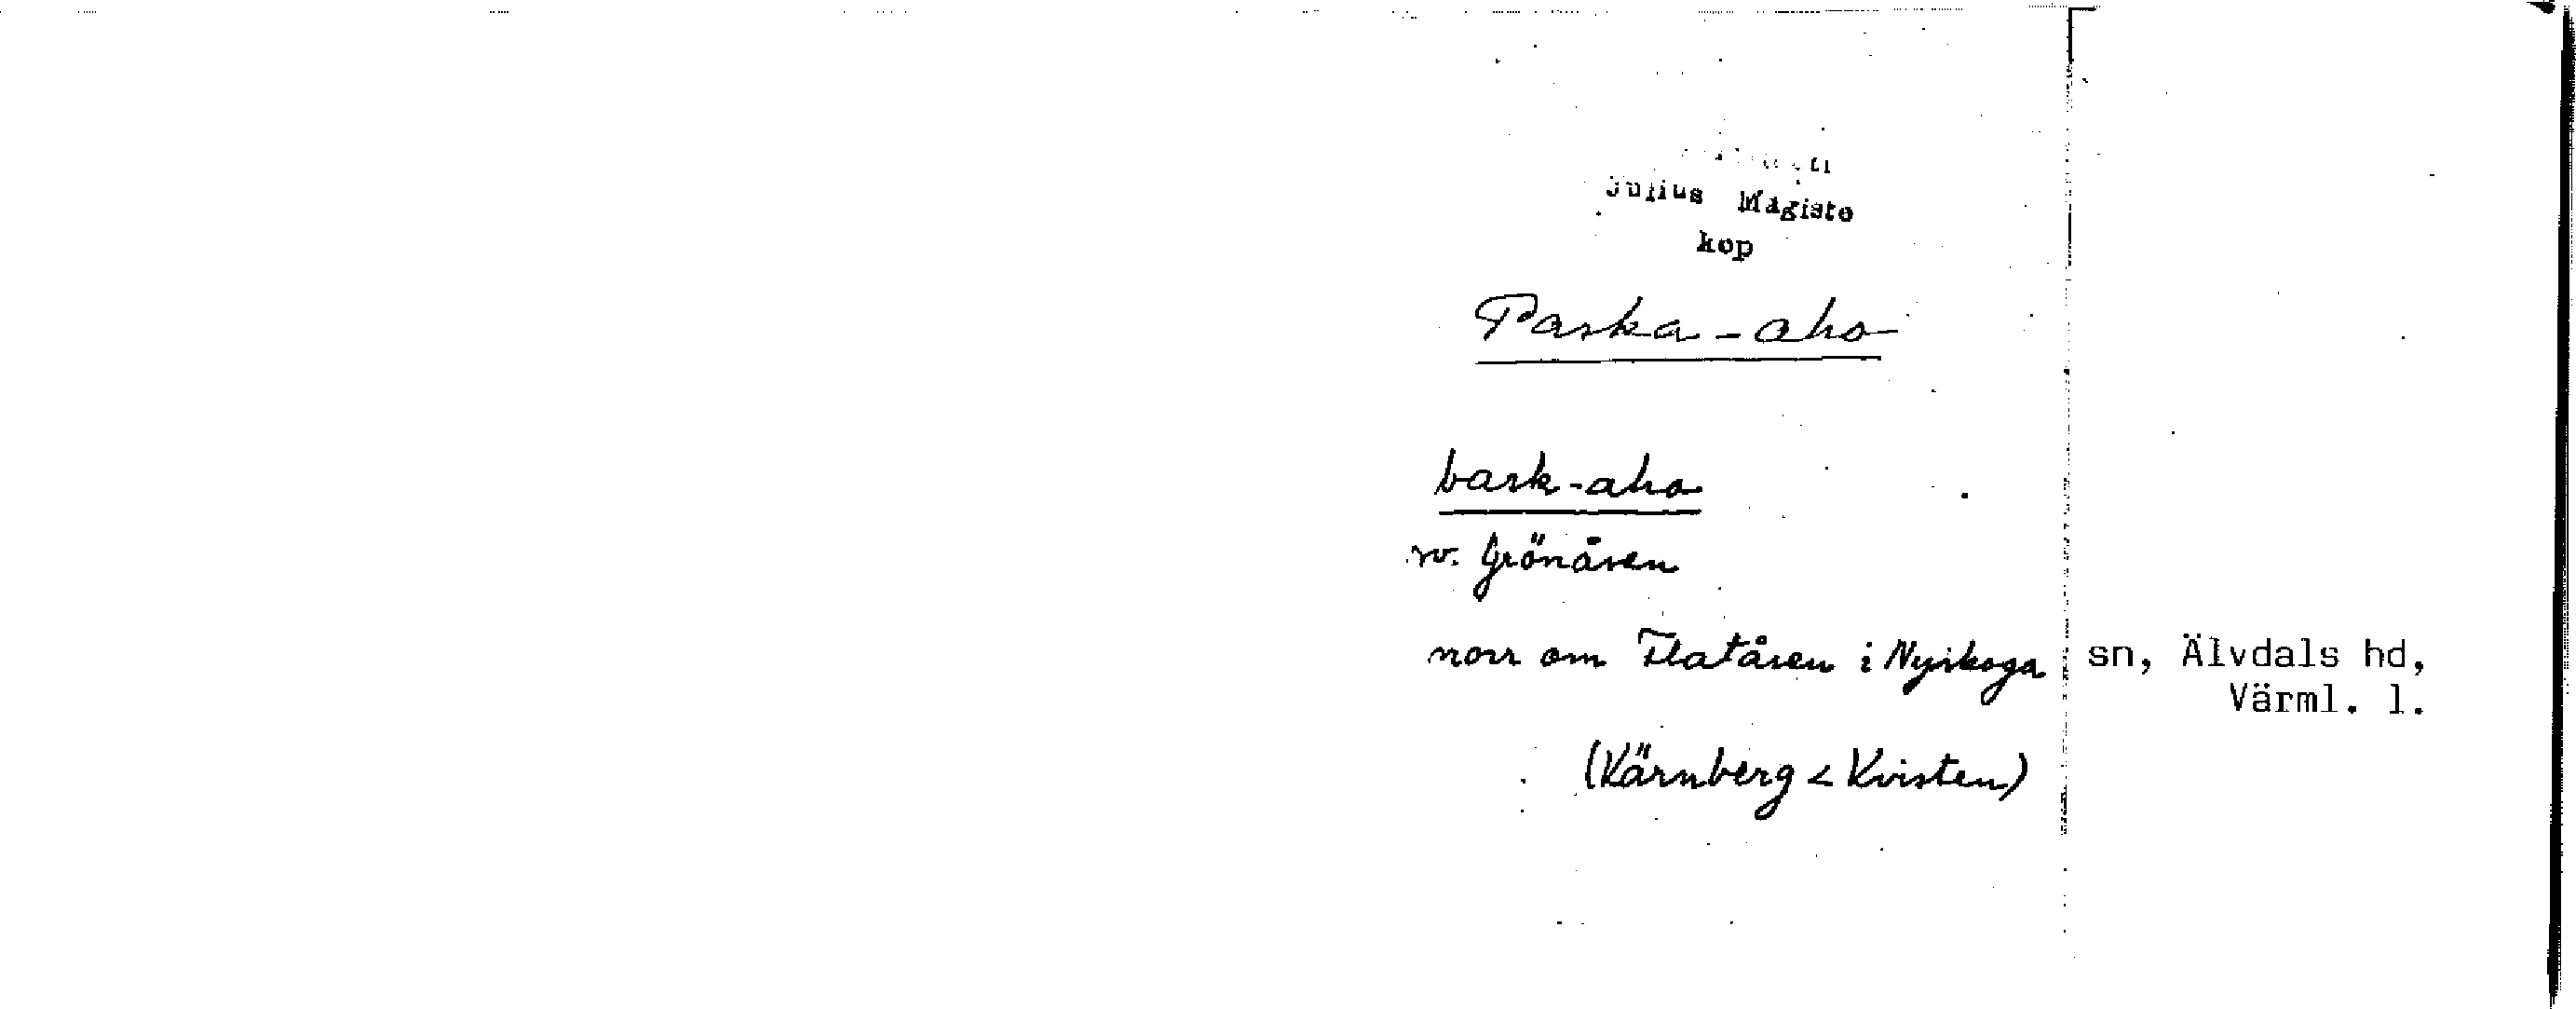 Julius Mägiste
kop
Paska-aho
bask-aho
sv. Grönåsen
norr om Flatåsen i Nyskoga sn, Älvdals hd,
Värml. l.
(Kärnberg < Kvisten)